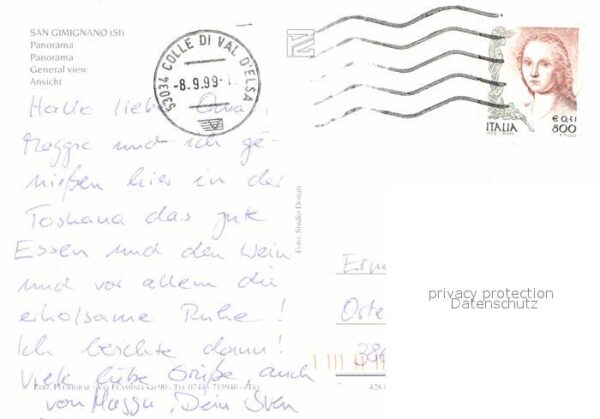 SAN GIMIGNANO (SI)
Panorama
Panorama
General view
Ansicht
53034 COLLE DI VAL D'ELSA
-8.9.99-1
ITALIA
€ 0,41
800
Hallo liebe Oma,
Maggie und ich ge-
nießen hier in der
Toskana das gute
Essen und den Wein
und vor allem die
erholsame Ruhe!
Ich berichte dann!
Viele liebe Grüße, auch
von Maggie, Dein Sven
Foto: Studio Donati
Orte
privacy protection
Datenschutz